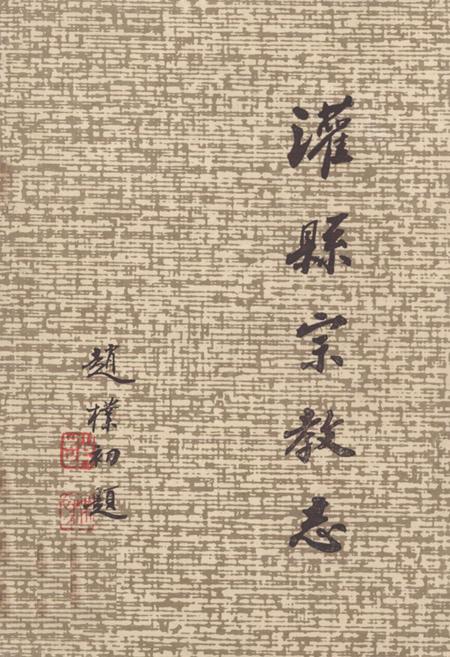 灌縣宗教志
趙樸初題